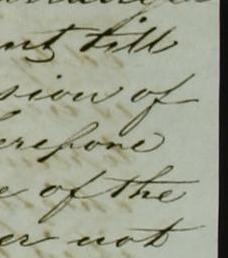 nt till
sion of
erefore
e of the
er not